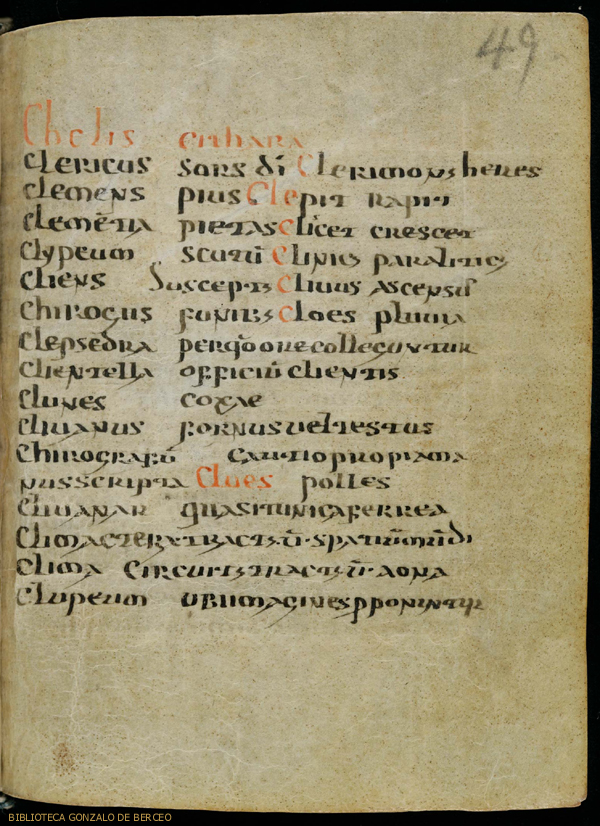 49
Chelis cithara
clericus sors dī Clerimonsheres
clemens pius Clepit rapit
clemētia pietas Clicet crescet
Clypeum scutū Clinics paralitics
cliens Susceptus Clivus Ascensus
Chirogus funibus Cloes pluma
Clepsedra per qd orecolleguntur
Clientella officiū clientis
Clunes coxae
Clivanus fornus vel testus
Chirografū cautio propiama
nus scripta Cloes polles
Clivanar quasitunicaferrea
Climacteratractus ū spatiū
Clima circuitus tractus ū aona
Clupeum ubi imagines pponuntur
BIBLIOTECA GONZALO DE BERCEO